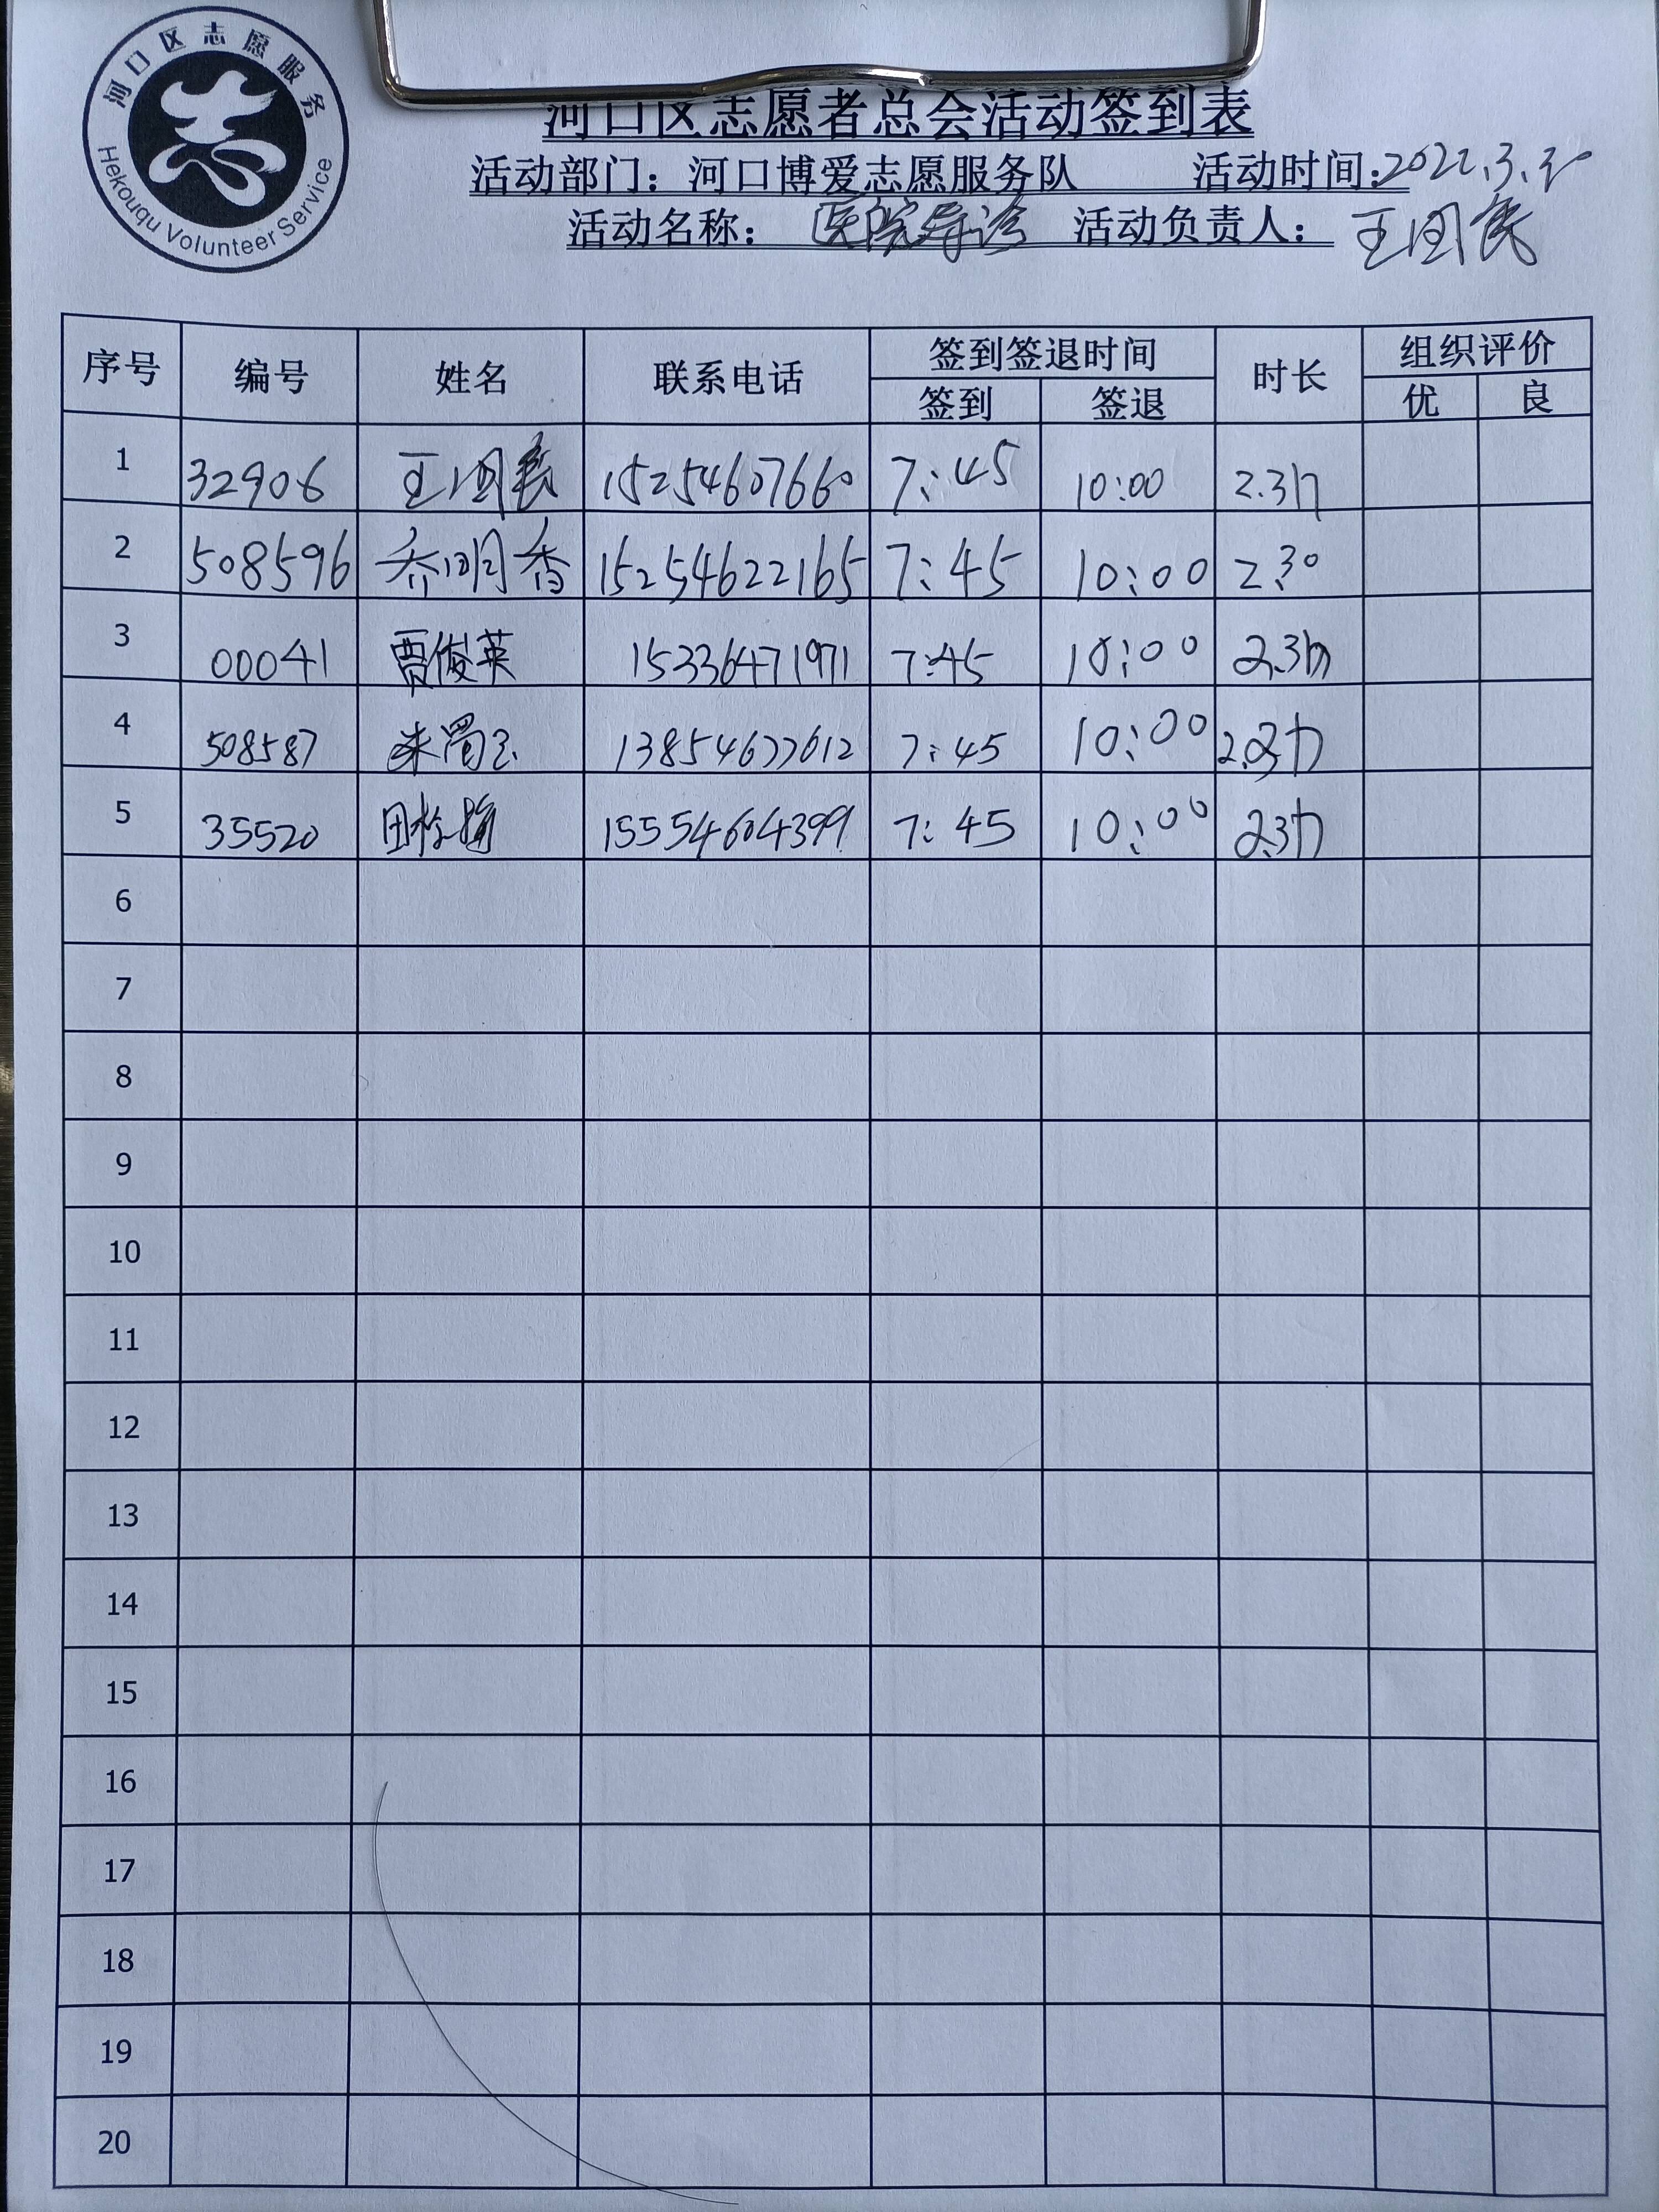 河口区志愿服务
Hekouqu Volunteer Service
河口区志愿者总会活动签到表
活动部门：河口博爱志愿服务队 活动时间：2022.3.30
活动名称：医院导诊 活动负责人：王国民
序号 编号 姓名 联系电话 签到签退时间 时长 组织评价
签到 签退 优 良
1 32906 王国民 15254607660 7:45 10:00 2.3h
2 508596 乔明香 15254622165 7:45 10:00 2.30
3 00041 贾俊英 15336471971 7:45 10:00 2.3h
4 508587 13854677612 7:45 10:00 2.3h
5 35520 田 15554604399 7:45 10:00 2.3h
6
7
8
9
10
11
12
13
14
15
16
17
18
19
20